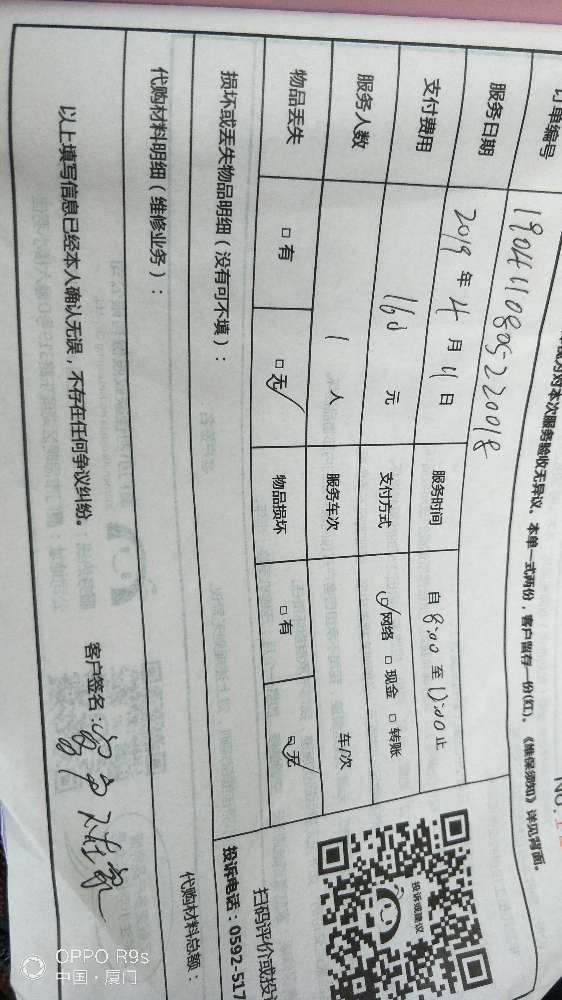 对本次服务验收无异议。本单一式两份，客户留存一份(红)，《维保须知》详见背面。
订单编号 1904110805220018
服务日期 2019 年 4 月 11 日 服务时间 自 8:00 至 12:00 止
支付费用 160 元 支付方式 ☑网络 □现金 □转账
服务人数 1 人 服务车次 车/次
物品丢失 □有 ☑无 物品损坏 □有 ☑无
损坏或丢失物品明细（没有可不填）：
代购材料明细（维修业务）：
代购材料总额：
以上填写信息已经本人确认无误，不存在任何争议纠纷。
客户签名：客户不在家
投诉或建议
扫码评价或投
投诉电话：0592-517
OPPO R9s
中国·厦门